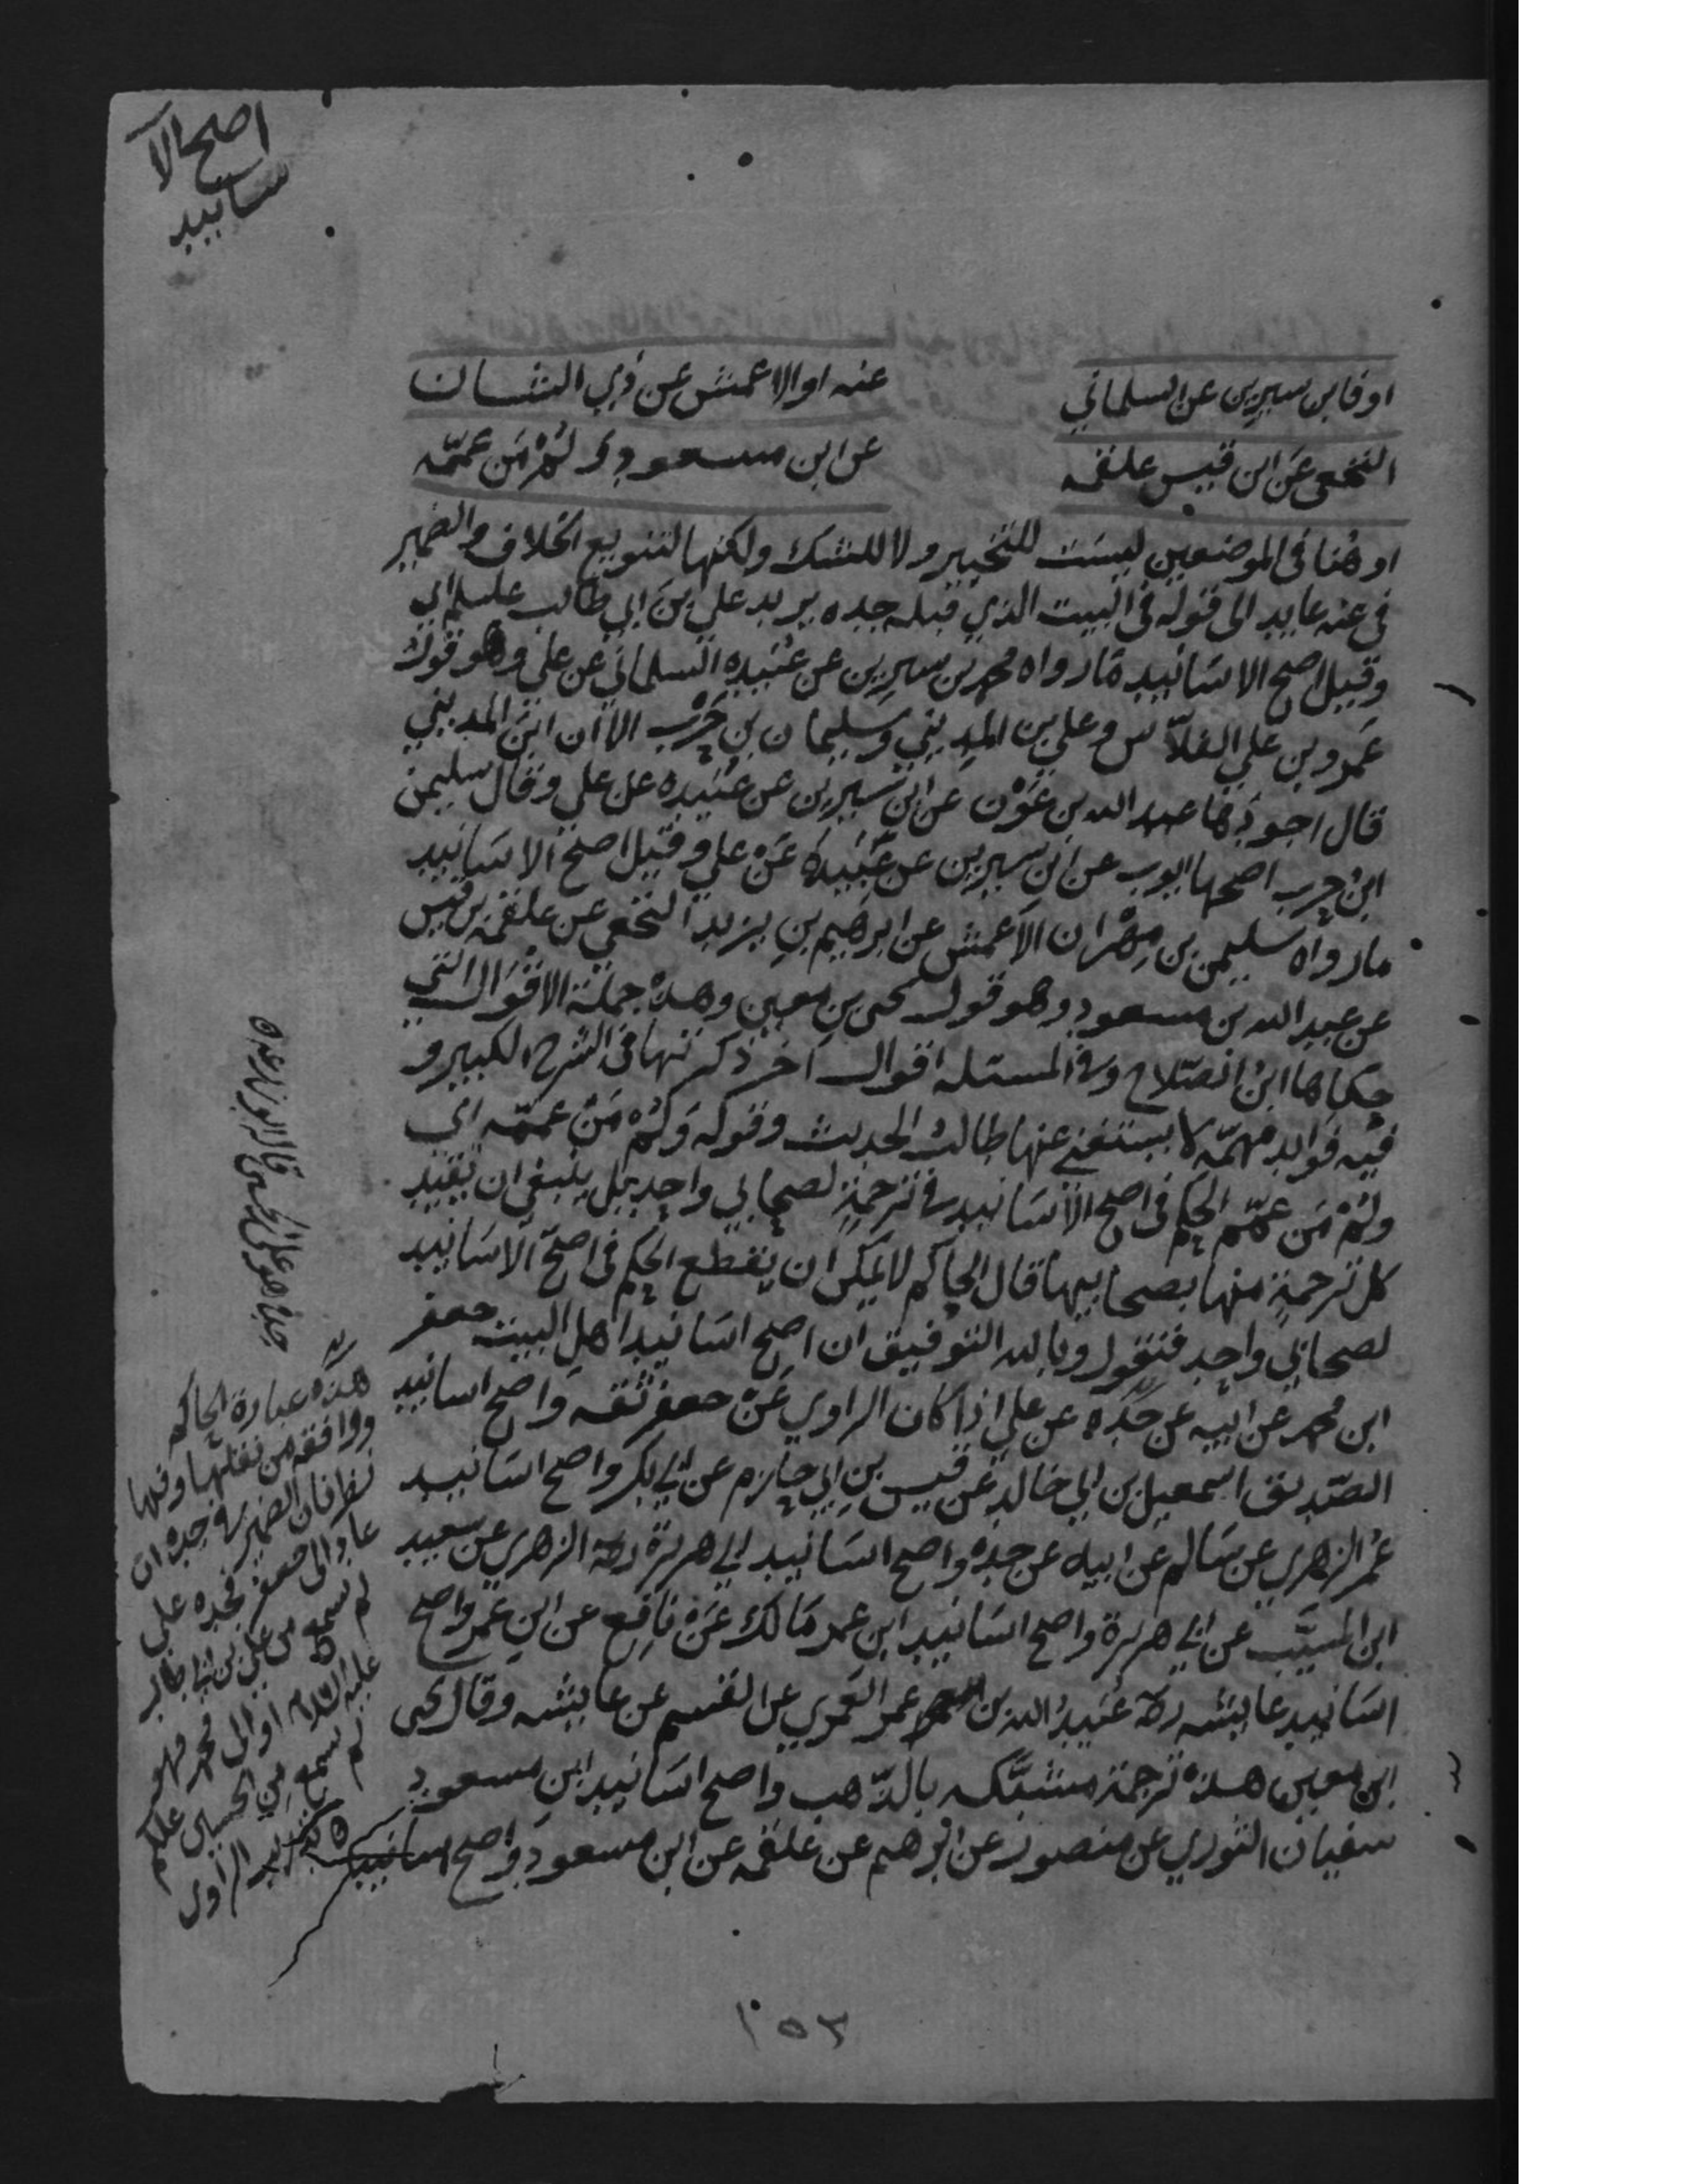 اصح الا
سانيد
او فابن سيرين عن السلماني عنه او الاعمش عن ذي الشان
النخعي عن ابن قيس علقمه عن ابن مسعود ولُمْ مَن عممّه
او هُنا في الموضعين ليست للتخيير ولا للشك ولكنها لتنويع الخلاف والضمير
في عنه عايد الى قوله في البيت الذي قبله جده يريد علي ابن ابي طالب عليلم اي
وقيل اصح الاسانيد ما رواه محمد بن سيرين عن عبيده السلماني عن علي وهو قول
عَمرو بن علي الفلاّس وعلي بن المديني وسليمان بن حَرْب الا ان ابن المديني
قال اجودها عبد الله بن عَوْن عن ابن سيرين عن عبيده عن علي وقال سليمن
ابنُ حرب اصحها ايوب عن ابن سيرين عن عَبيدة عَنْ علي وقيل اصح الاسانيد
ما رواه سليمن بن مِهْران الاعمش عن ابرهيم بن يزيد النخعي عن علقمه بن قيس
عن عبد الله بن مسعود وهو قول يحيى بن معين وهذه جملة الاقوال التي
حكاها ابنُ الصّلاح وفي المسئله اقوال اخر ذكرتها في الشرح الكبير و
فيه فوايد مهمّه لا يستغنى عنها طالبُ الحديث وقوله وَلُمْ مَنْ عممّه اي
ولُمْ مَن عمّم الحكم في اصح الاسانيد في ترجمةٍ لصحابي واحدٍ بل ينبغي ان تقيد
كل ترجمةٍ منها بصحابيها قال الحاكم لا يمكن ان يقطع الحكم في اصحّ الاسانيد
لصحابي واحد فنقول وبالله التوفيق ان اصح اسانيد اهل البيت جعفر
ابن محمد عن ابيه عن جَدّه عن علي اذا كان الراوي عَنْ جعفر ثقه واصح اسانيد
الصّديق اسمعيل بن ابي خالد عن قيس بن ابي حازم عن ابي بكر واصح اسانيد
عُمر الزهري عن سالم عن ابيه عن جده واصح اسانيد ابي هريرة رضه الزهري عن سعيد
ابن المسيَّب عن ابي هريرة واصح اسانيد ابن عمر مَالك عَنْ نافِع عن ابن عُمر واصح
اسانيد عايشه رضه عُبيدُ الله بن عمر العُمري عن القسم عن عايشه وقال يحيى
ابن معين هذه ترجمة مشبّكه بالذّهب واصح اسانيد ابن مسعود
سفيان الثوري عن منصور عن ابرهيم عن علقمه عن ابن مسعود واصح اسانيد
هذه عبارة الحاكم
ووافقه من نقلها وفيها
نظر فان الضمير في جده ان
عاد الى جعفر فجده علي
لم يسمع من علي بن ابي طالب
عليه السلام او الى محمد فهو
لم يسمع من الحسين علكم